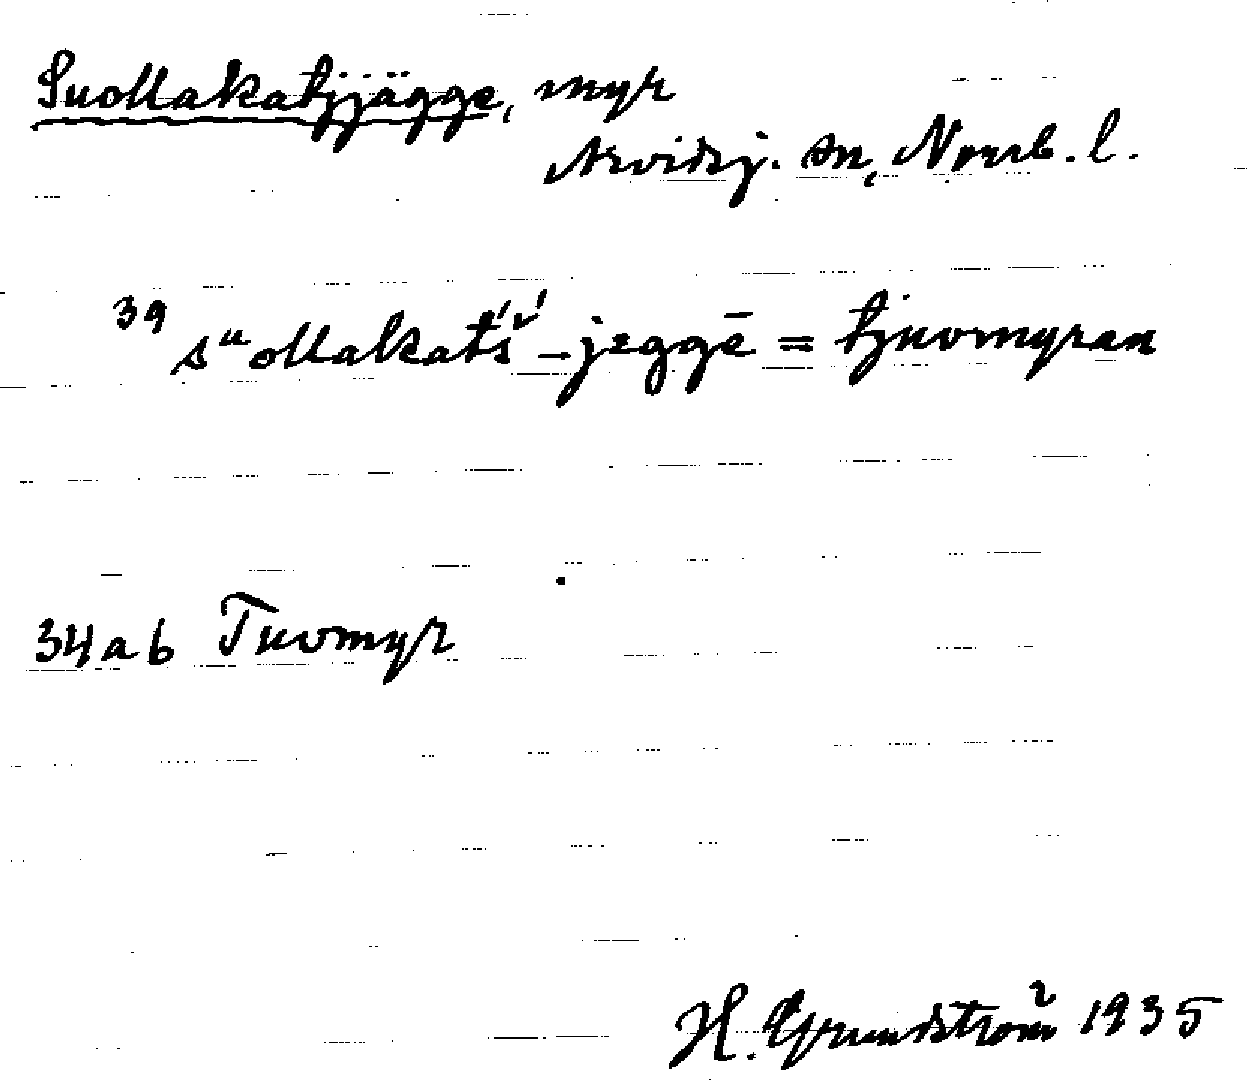 Suollakatjjägge, myr
Arvidsj. sn, Norrb. l.
39 sᵘollakat́š́ -jeggē = tjuvmyran
34ab Tuvmyr
H. Grundström 1935